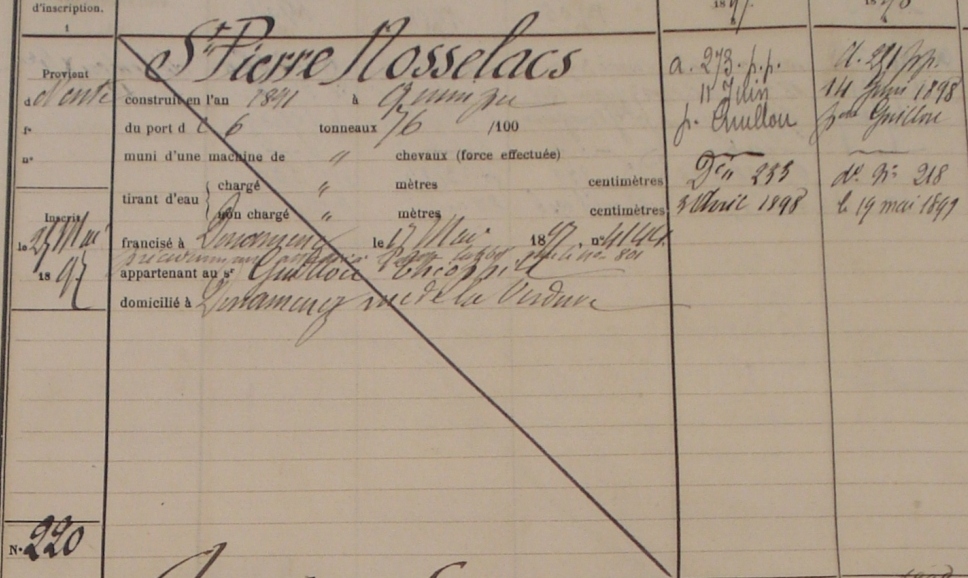 d'inscription.
1
St Pierre Nosselacs
Provient
d
construit en l'an 1891 à
fo
du port de 6 tonneaux 76 /100
no
muni d'une machine de " chevaux (force effectuée)
tirant d'eau
chargé " mètres centimètres
non chargé " mètres centimètres
Inscrit
le 25 Mai
1897
francisé à Douarnenez le 17 Mai 1897 no 4144
appartenant au sr Guillou Théophile
domicilié à Douarnenez rue de la Verdure
No 220
1897
a. 273. p.p.
11 Juin
p. Guillou
Dre " 233
3 Avril 1898
d. 291 pp.
14 Juin 1898
Guillou
do. No 218
le 19 mai 1899